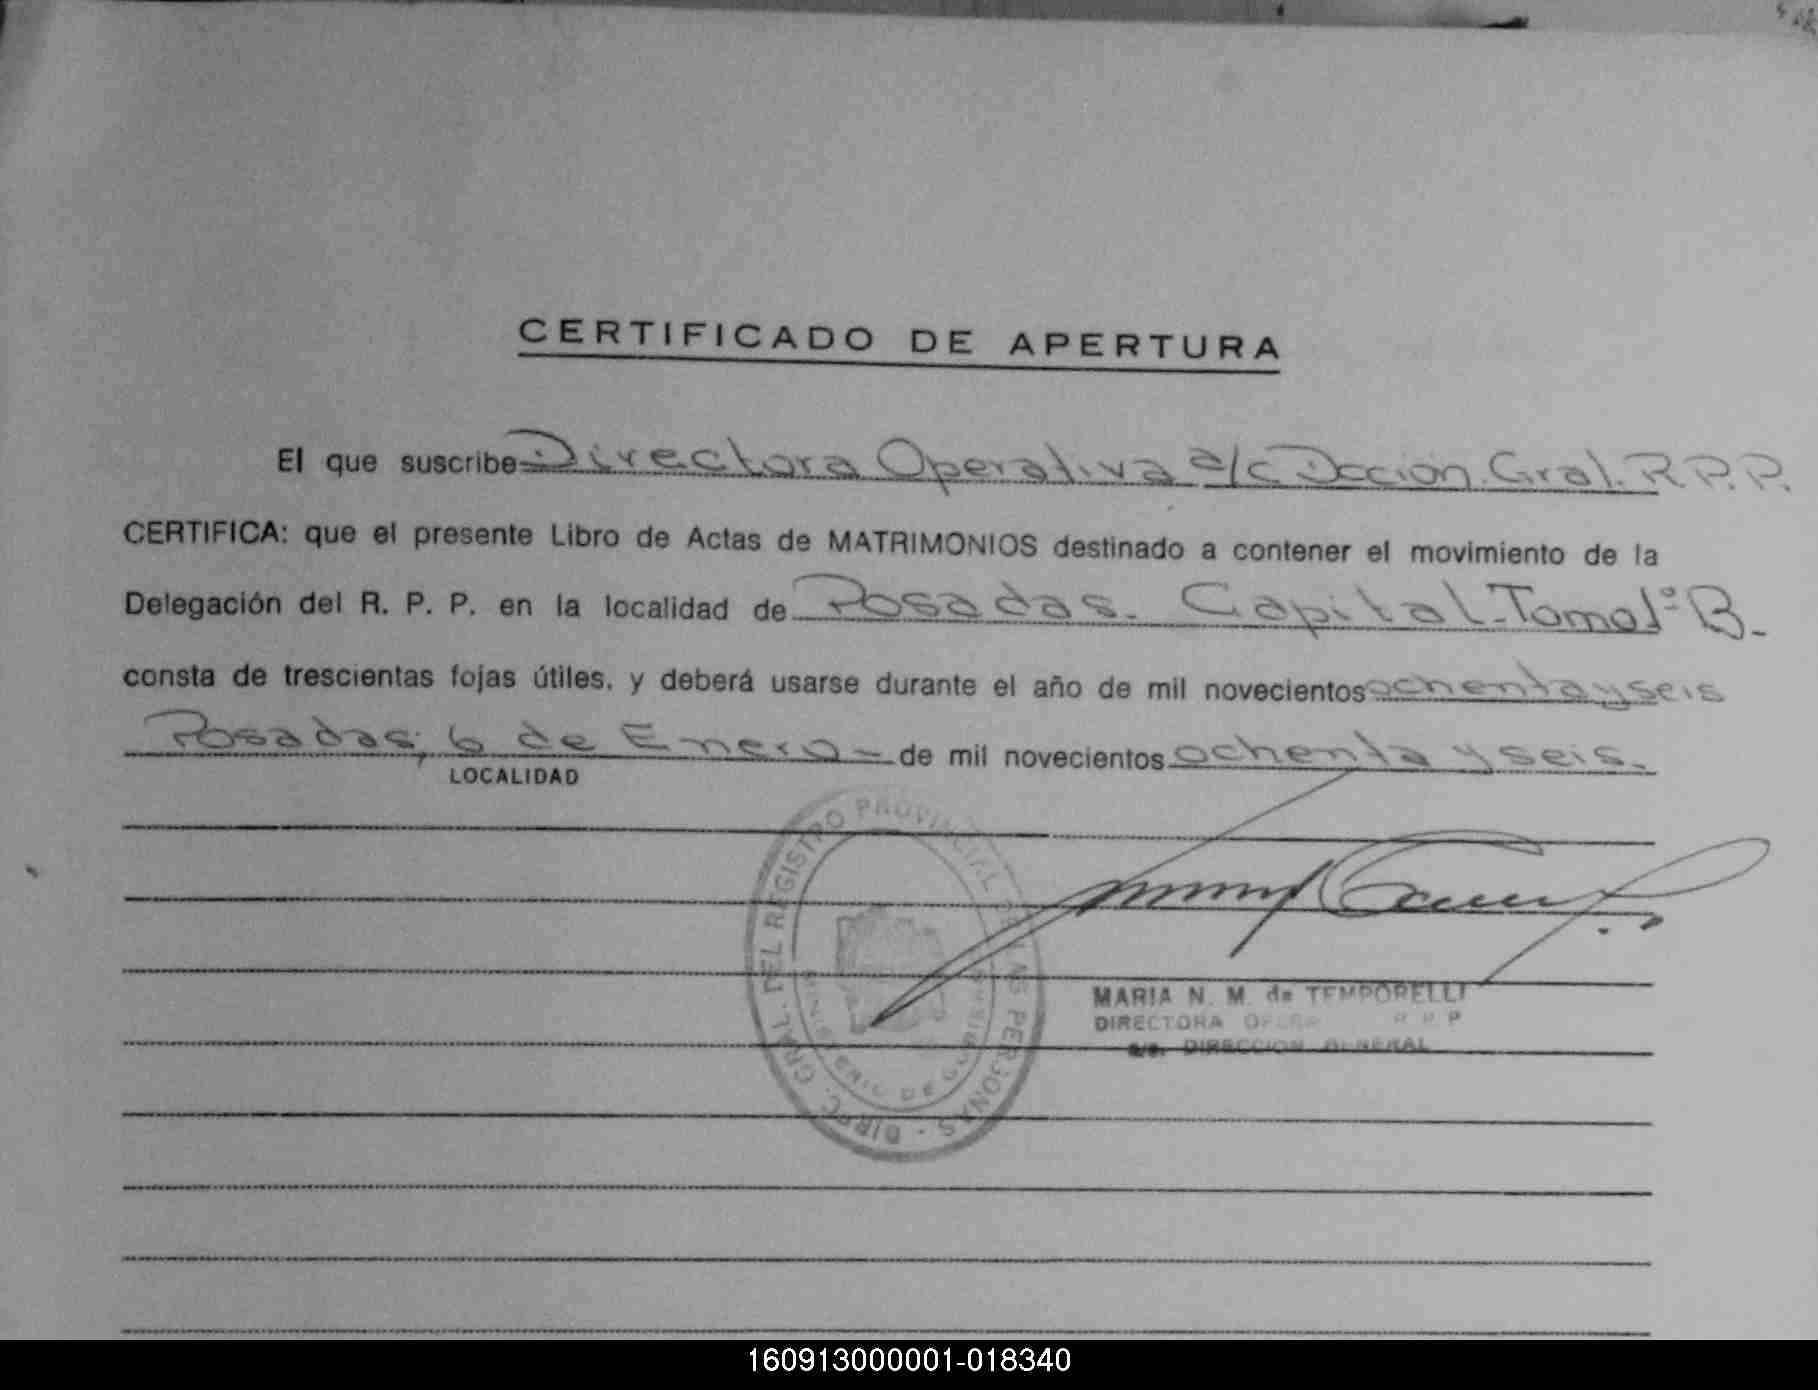 CERTIFICADO DE APERTURA
El que suscribe Directora Operativa a/c Dcción. Gral. R.P.P.
CERTIFICA: que el presente Libro de Actas de MATRIMONIOS destinado a contener el movimiento de la
Delegación del R. P. P. en la localidad de Posadas. Capital. Tomo 1º B.
consta de trescientas fojas útiles, y deberá usarse durante el año de mil novecientos ochenta y seis
Posadas, 6 de Enero - de mil novecientos ochenta y seis.
LOCALIDAD
DIREC. GRAL. DEL REGISTRO PROVINCIAL DE LAS PERSONAS -
MINISTERIO DE GOBIERNO
MARIA N. M. de TEMPORELLI
DIRECTORA R P P
a/c. DIRECCION GENERAL
160913000001-018340